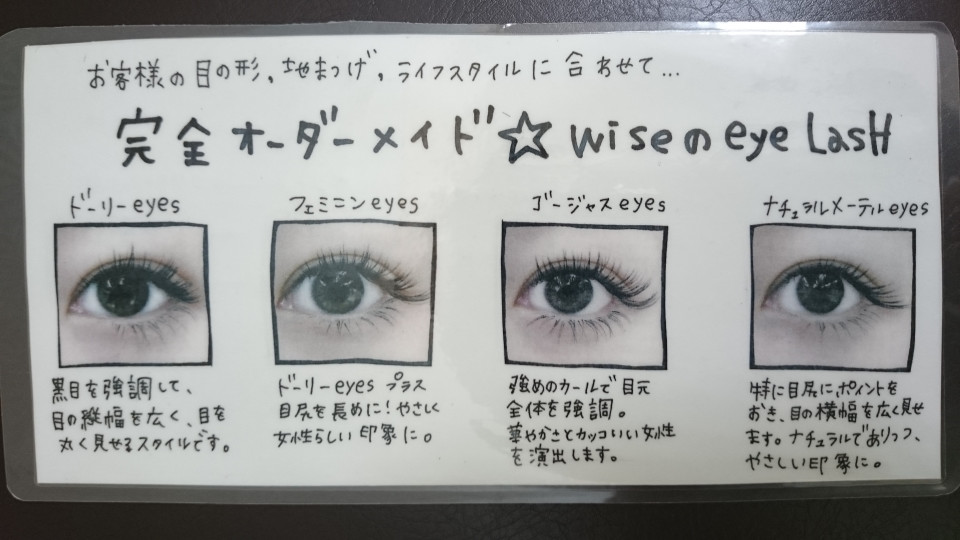 お客様の目の形,地まつげ,ライフスタイルに合わせて...
完全オーダーメイド☆wiseのeye LasH
ドーリーeyes
黒目を強調して、
目の縦幅を広く、目を
丸く見せるスタイルです。
フェミニンeyes
ドーリーeyes プラス
目尻を長めに!やさしく
女性らしい印象に。
ゴージャスeyes
強めのカールで目元
全体を強調。
華やかさとカッコいい女性
を演出します。
ナチュラルメーテルeyes
特に目尻にポイントを
おき、目の横幅を広く見せ
ます。ナチュラルでありつつ、
やさしい印象に。